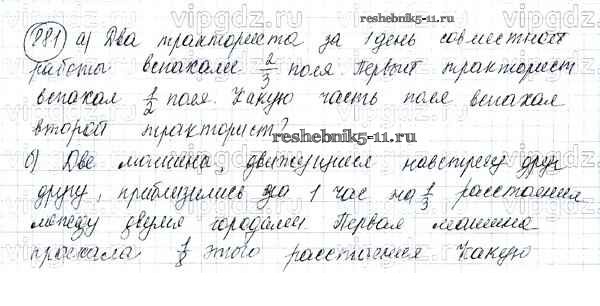 vipgdz.ru vipgdz.ru vipgdz.ru
reshebnik5-11.ru
881 а) Два тракториста за 1 день совместной
работы вспахали 2/3 поля. Первый тракторист
вспахал 1/2 поля. Какую часть поля вспахал
второй тракторист?
reshebnik5-11.ru
б) Две машины, движущиеся навстречу друг
другу, приблизились за 1 час на 1/3 расстояния
между двумя городами. Первая машина
проехала 1/8 этого расстояния Какую